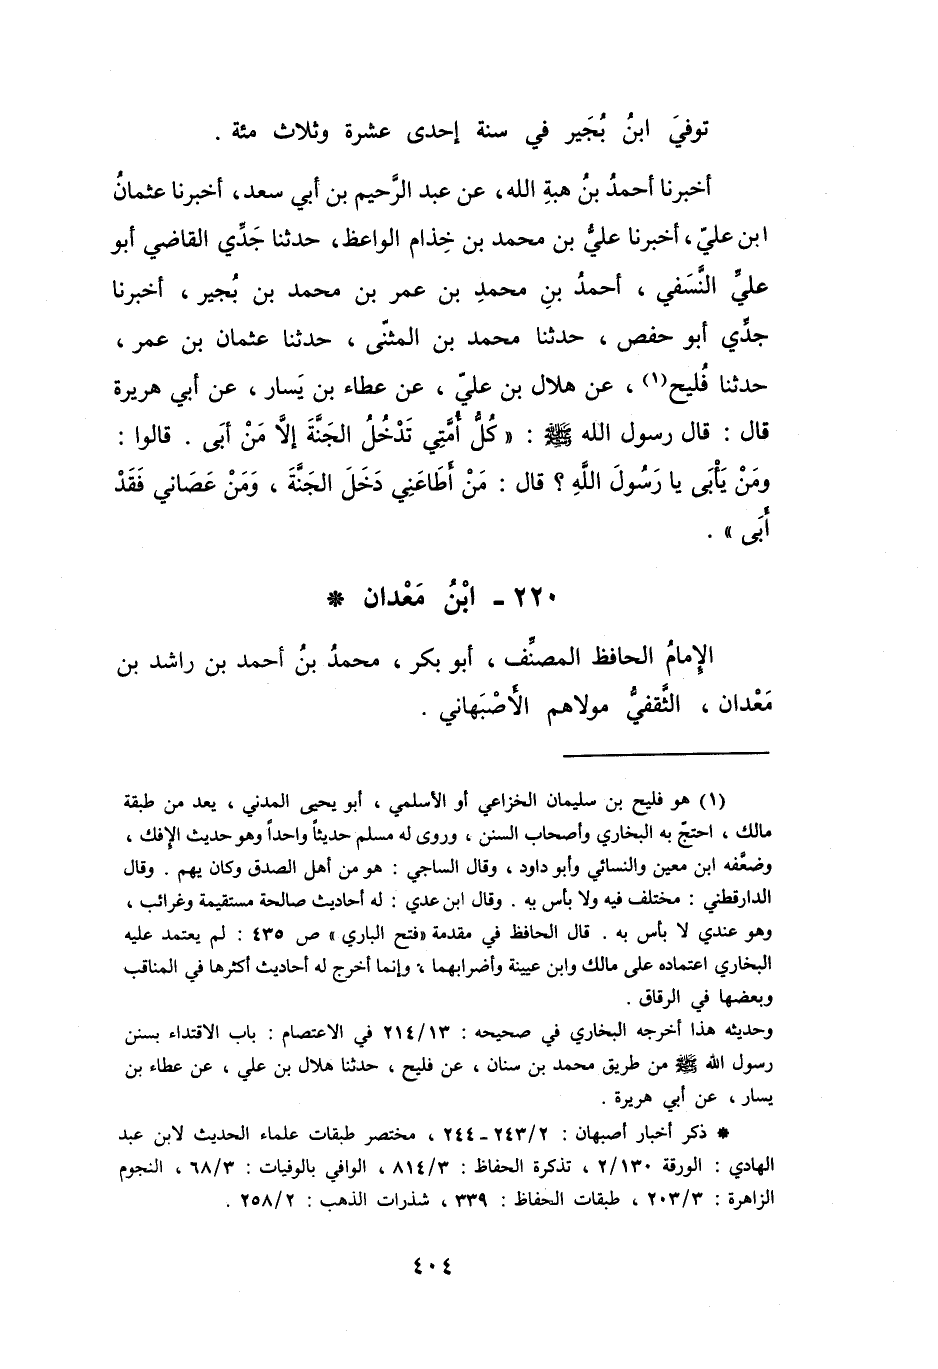 توفيَ ابنُ بُجَير في سنة إحدى عشرة وثلاث مئة .
أخبرنا أحمدُ بنُ هبةِ الله، عن عبد الرَّحيم بن أبي سعد، أخبرنا عثمانُ
ابن عليّ، أخبرنا عليُّ بن محمد بن خِذام الواعظ، حدثنا جَدِّي القاضي أبو
عليٍّ النَّسَفي ، أحمدُ بنِ محمدِ بن عمر بن محمد بن بُجير ، أخبرنا
جدِّي أبو حفص ، حدثنا محمد بن المثنّى ، حدثنا عثمان بن عمر ،
حدثنا فُليح(١) ، عن هلال بن عليّ ، عن عطاء بن يَسار ، عن أبي هريرة
قال : قال رسول الله ﷺ : « كُلُّ أُمَّتِي تَدْخُلُ الجَنَّةَ إلاَّ مَنْ أَبَى . قالوا :
ومَنْ يَأْبَى يا رَسُولَ اللَّهِ ؟ قال : مَنْ أَطَاعَنِي دَخَلَ الجَنَّةَ ، وَمَنْ عَصَاني فَقَدْ
أَبَى » .
٢٢٠ - ابْنُ مَعْدان *
الإِمامُ الحافظ المصنِّف ، أبو بكر ، محمدُ بنُ أحمد بن راشد بن
مَعْدان ، الثَّقفيُّ مولاهم الأَصْبَهاني .
(١) هو فليح بن سليمان الخزاعي أو الأسلمي ، أبو يحيى المدني ، يعد من طبقة
مالك ، احتجّ به البخاري وأصحاب السنن ، وروى له مسلم حديثاً واحداً وهو حديث الإفك ،
وضعَّفه ابن معين والنسائي وأبو داود ، وقال الساجي : هو من أهل الصدق وكان يهم . وقال
الدارقطني : مختلف فيه ولا بأس به . وقال ابن عدي : له أحاديث صالحة مستقيمة وغرائب ،
وهو عندي لا بأس به . قال الحافظ في مقدمة «فتح الباري » ص ٤٣٥ : لم يعتمد عليه
البخاري اعتماده على مالك وابن عيينة وأضرابهما ، وإنما أخرج له أحاديث أكثرها في المناقب
وبعضها في الرقاق .
وحديثه هذا أخرجه البخاري في صحيحه : ٢١٤/١٣ في الاعتصام : باب الاقتداء بسنن
رسول الله ﷺ من طريق محمد بن سنان ، عن فليح ، حدثنا هلال بن علي ، عن عطاء بن
يسار ، عن أبي هريرة .
* ذكر أخبار أصبهان : ٢٤٣/٢ - ٢٤٤ ، مختصر طبقات علماء الحديث لابن عبد
الهادي : الورقة ٢/١٣٠ ، تذكرة الحفاظ : ٨١٤/٣ ، الوافي بالوفيات : ٦٨/٣ ، النجوم
الزاهرة : ٢٠٣/٣ ، طبقات الحفاظ : ٣٣٩ ، شذرات الذهب : ٢٥٨/٢ .
٤٠٤